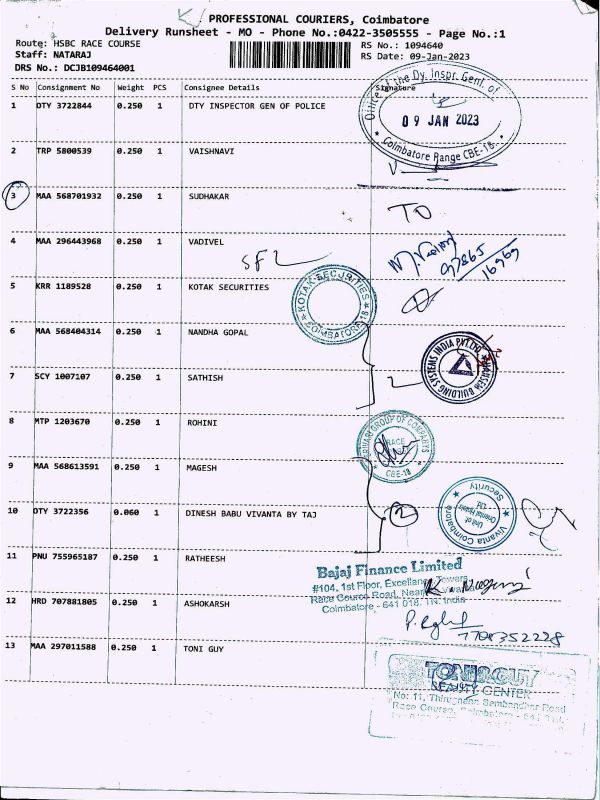 PROFESSIONAL COURIERS, Coimbatore
Delivery Runsheet - MO - Phone No.:0422-3505555 - Page No.:1
Route: HSBC RACE COURSE
Staff: NATARAJ
DRS No.: DCJB109464001
RS No.: 1094640
RS Date: 09-Jan-2023
S No Consignment No Weight PCS Consignee Details Signature
1 DTY 3722844 0.250 1 DTY INSPECTOR GEN OF POLICE
Office of the Dy. Inspr. Genl. of
09 JAN 2023
Coimbatore Range CBE-18.
2 TRP 5800539 0.250 1 VAISHNAVI
3 MAA 568701932 0.250 1 SUDHAKAR
TO
4 MAA 296443968 0.250 1 VADIVEL
97865
16969
5 KRR 1189528 0.250 1 KOTAK SECURITIES
KOTAK SECURITIES
COIMBATORE
6 MAA 568404314 0.250 1 NANDHA GOPAL
BUILDING SYSTEMS INDIA PVT LTD
7 SCY 1007107 0.250 1 SATHISH
8 MTP 1203670 0.250 1 ROHINI
GROUP OF COMPANYS
RACE
CBE-18
9 MAA 568613591 0.250 1 MAGESH
10 DTY 3722356 0.060 1 DINESH BABU VIVANTA BY TAJ
2
Vivanta Coimbatore
Unit of
Oriental Hotels
Ltd
Security
11 PNU 755965187 0.250 1 RATHEESH
Bajaj Finance Limited
#104, 1st Floor, Excellancy Towers
Race Course Road, Near Vivanta
Coimbatore - 641 018. TN. India
12 HRD 707881805 0.250 1 ASHOKARSH
7708352228
13 MAA 297011588 0.250 1 TONI GUY
TONI&GUY
BEAUTY CENTER
No: 11, Thirugnana Sambandhar Road
Race Course, Coimbatore - 641 018.